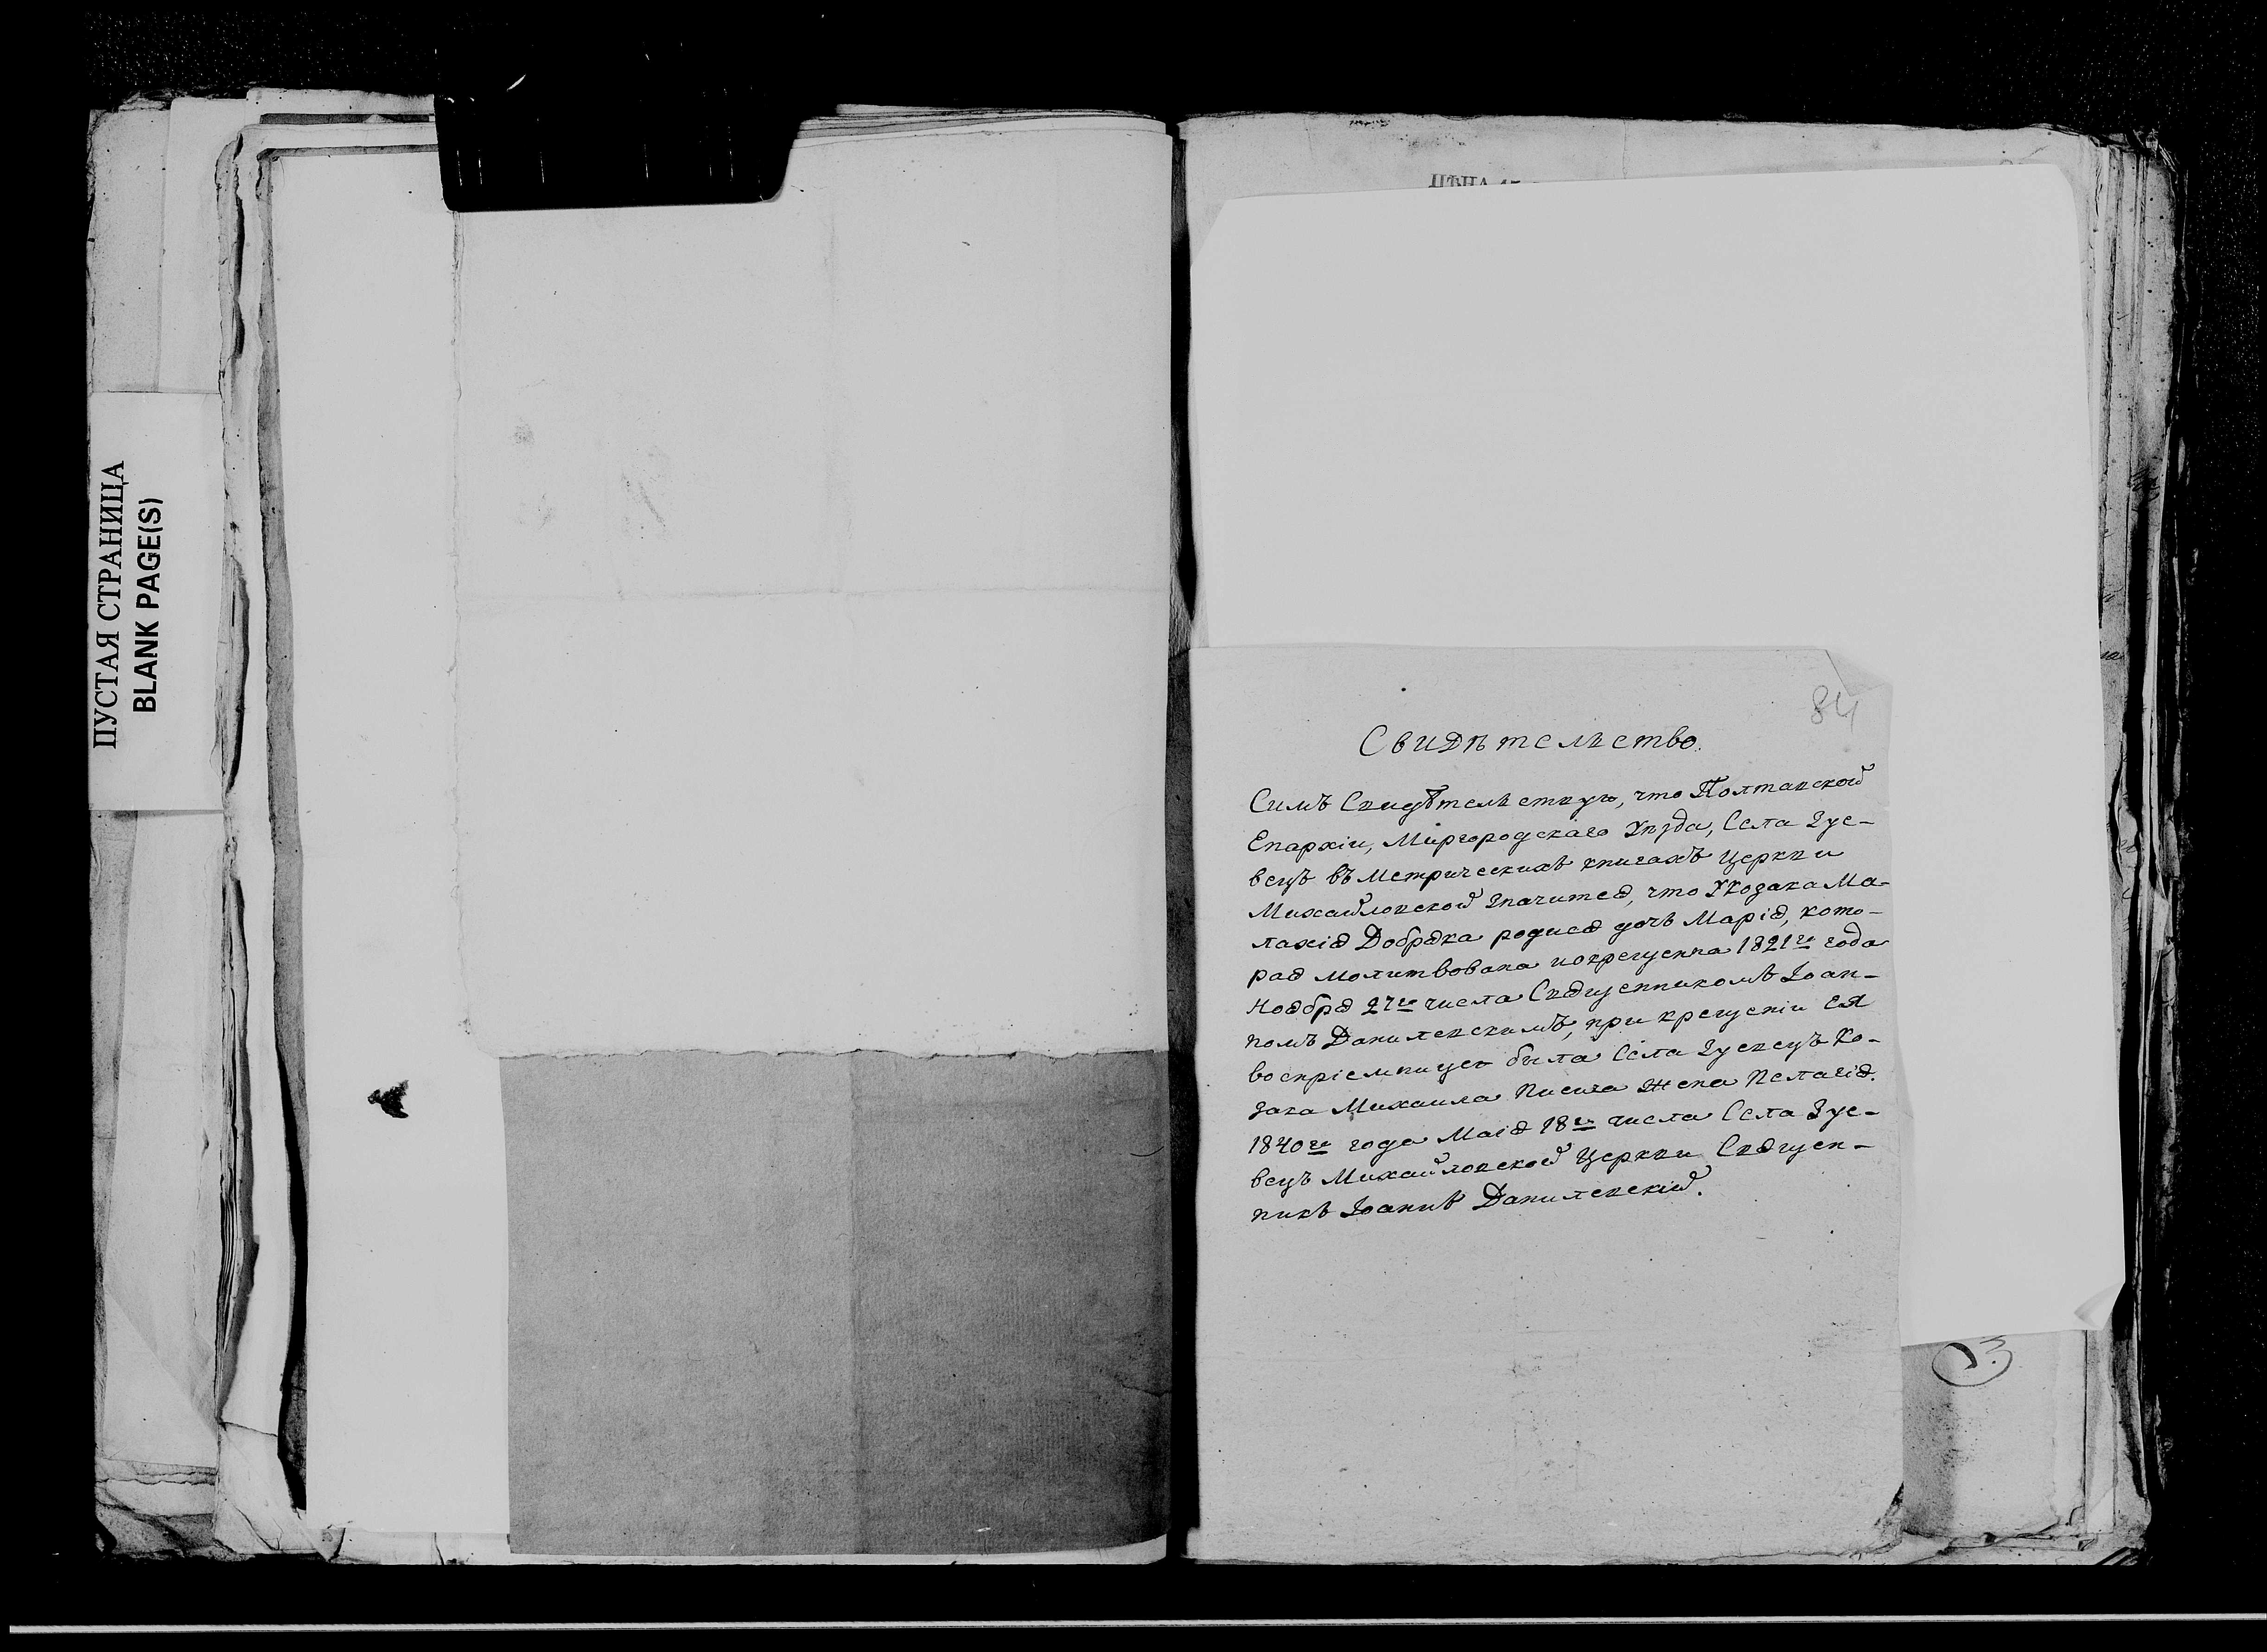 ПУСТАЯ СТРАНИЦА
BLANK PAGE(S)
ЦѢНА
84
Свидѣтельство.
Симъ Свидѣтельствую, что Полтавской
Епархіи, Миргородскаго Уѣзда, Села Зуе-
вецъ въ Метрическихъ книгахъ церкви
Михайловской значится, что У козака Ма-
лахія Добряка родися дочь Марія, кото-
рая молитвована и окрещенна 1821го года
Ноября 27го числа Священникомъ Іоан-
номъ Данилевскимъ, при крещеніи ея
воспріемницею была Села Зуевецъ Ко-
зака Михаила жена Пелагія.
1840го года Маія 18го числа Села Зуе-
вецъ Михайловской Церкви Священ-
никъ Іоаннъ Данилевскій.